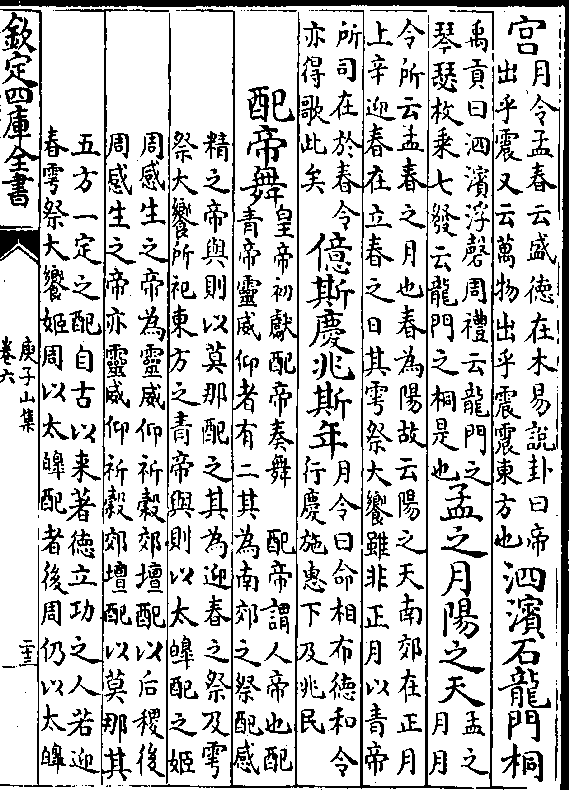 宮
月令孟春云盛德在木易說卦曰帝
出乎震又云萬物出乎震震東方也
泗濱石龍門桐
禹貢曰泗濱浮磬周禮云龍門之
琴瑟枚乗七發云龍門之桐是也
孟之月陽之天
孟之月
月
令所云孟春之月也春為陽故云陽之天南郊在正月
上辛迎春在立春之日其雩祭大饗雖非正月以青帝
所司在於春令
亦得歌此矣
億斯慶兆斯年
月令曰命相布德和令
行慶施惠下及兆民
配帝舞
皇帝初獻配帝奏舞　配帝謂人帝也配
青帝靈威仰者有二其為南郊之祭配感
精之帝與則以莫那配之其為迎春之祭及雩
祭大饗所祀東方之青帝與則以太皥配之姬
周感生之帝為靈威仰祈穀郊壇配以后稷後
周感生之帝亦靈威仰祈穀郊壇配以莫那其
五方一定之配自古以来著德立功之人若迎
春雩祭大饗姬周以太皥配者後周仍以太皥
欽定四庫全書
庾子山集
卷六
二十三